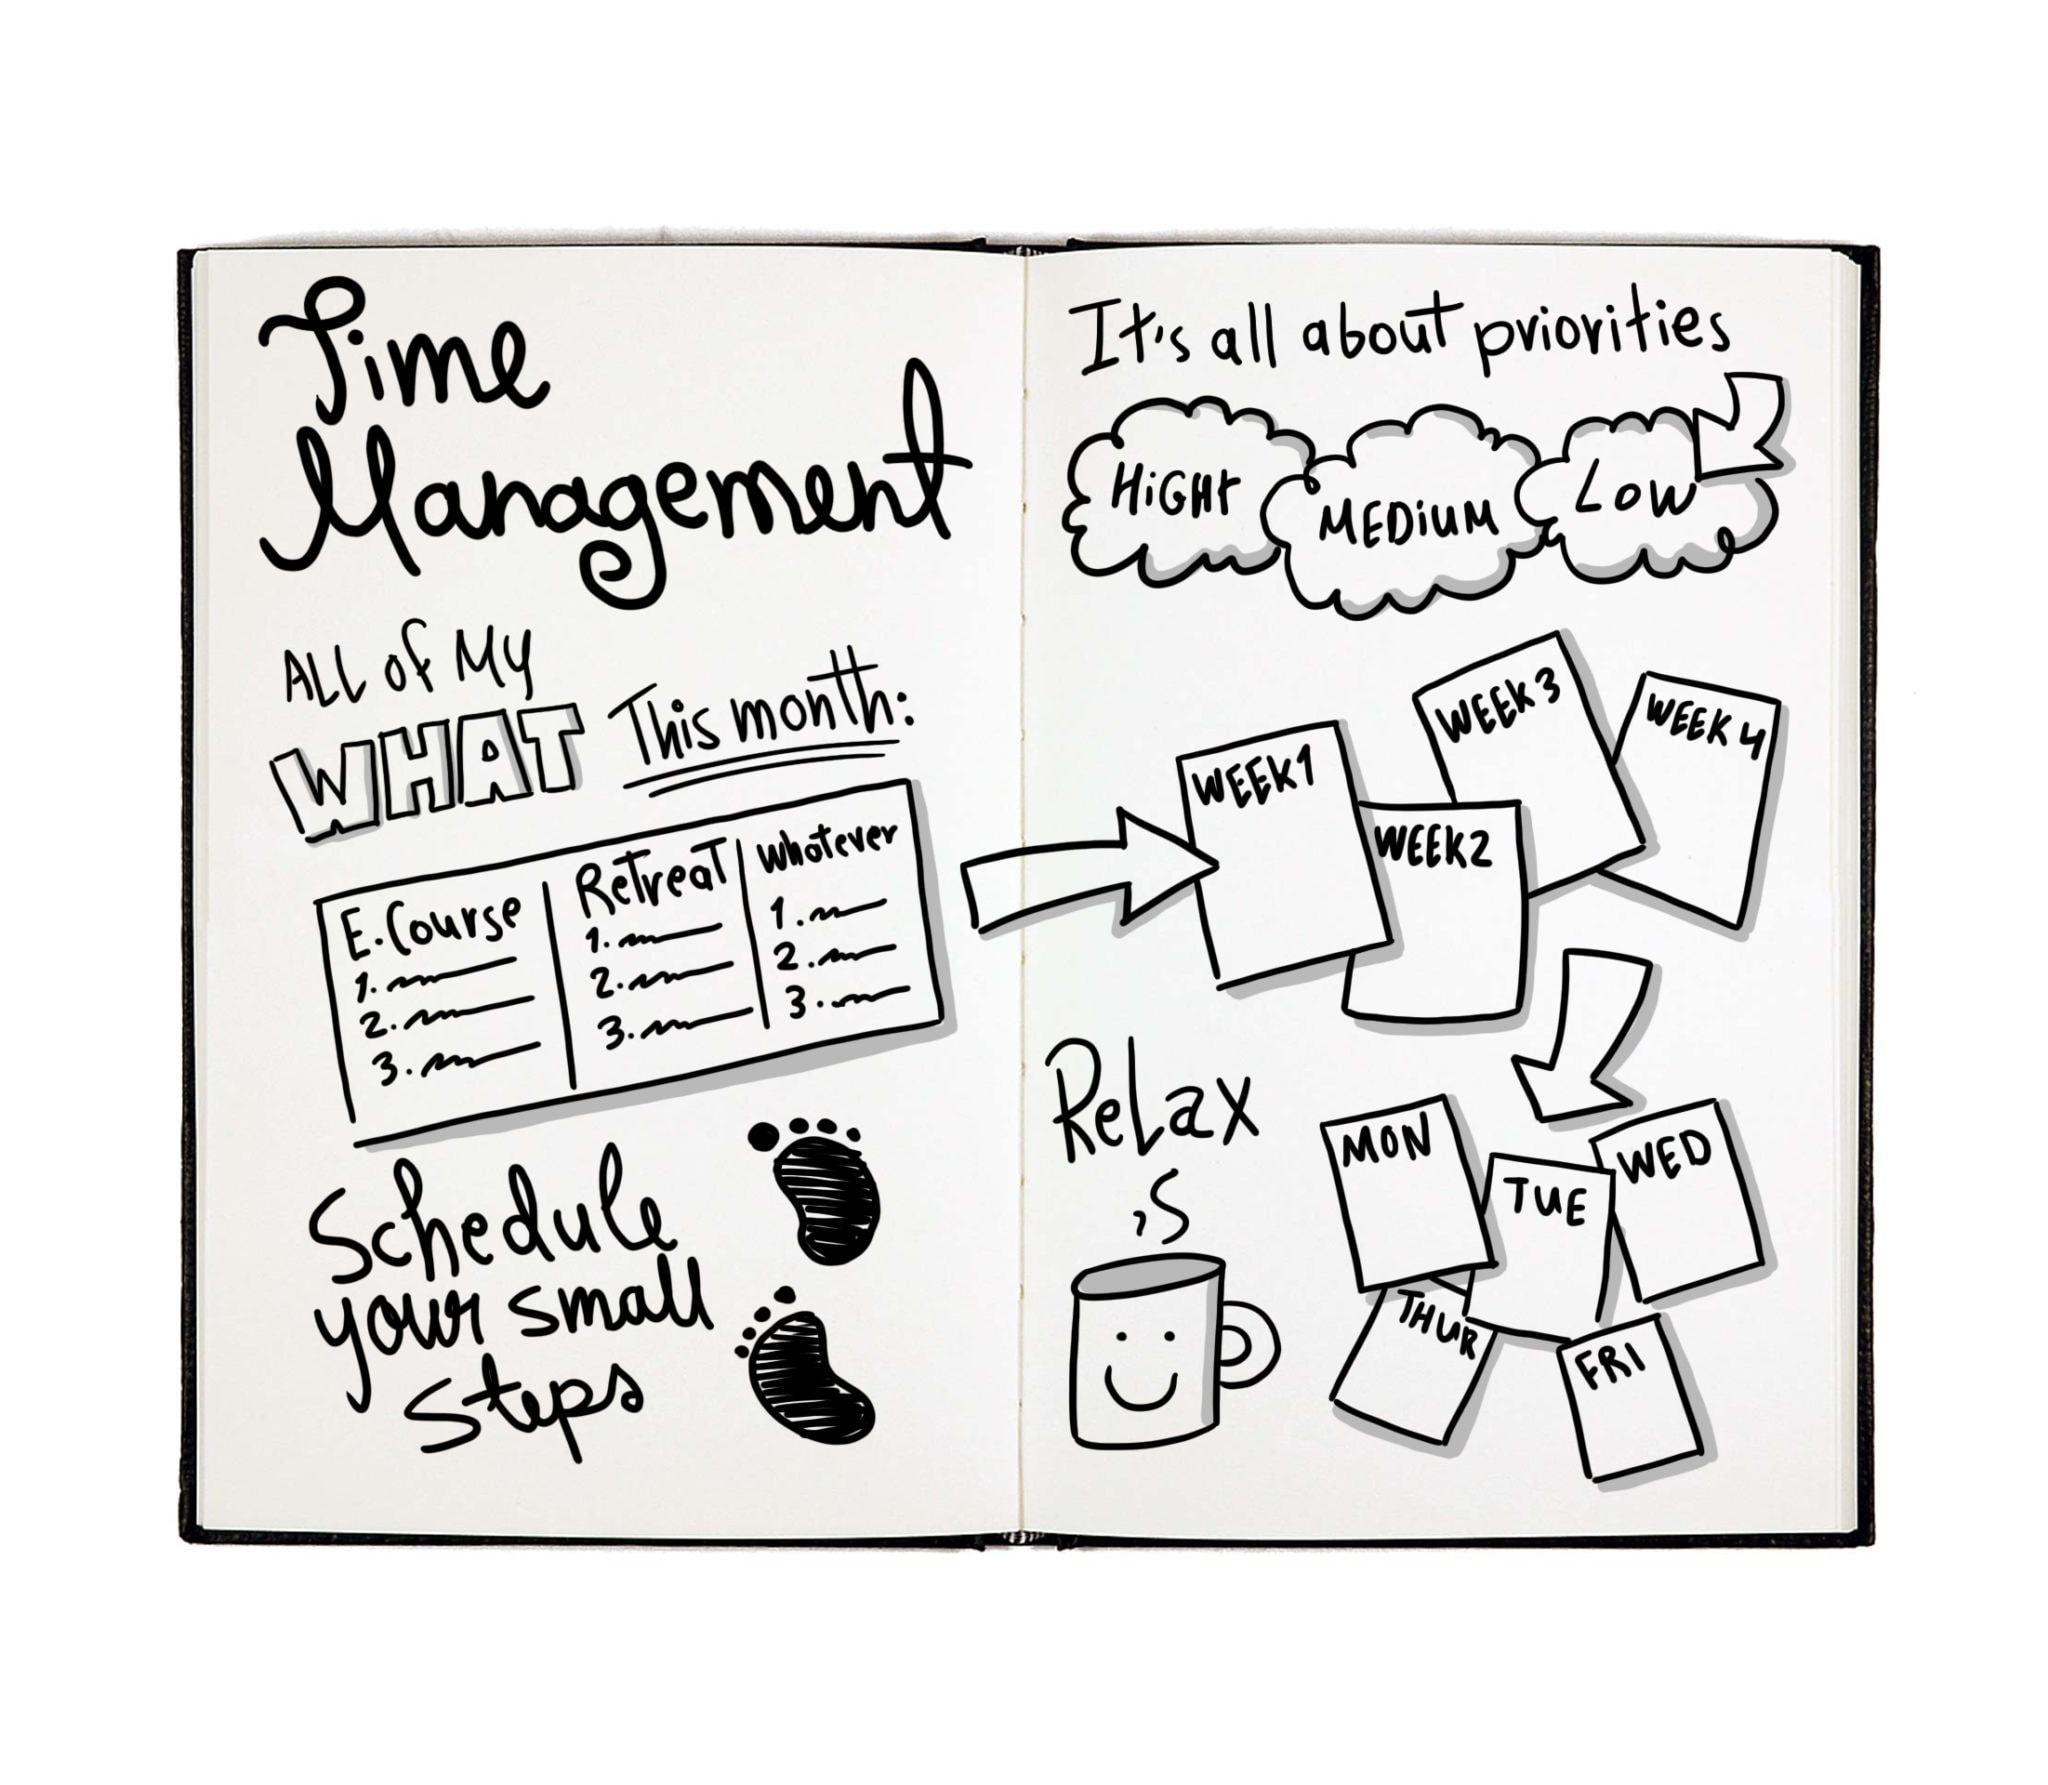 Time
Management
ALL of MY
WHAT This month:
E.Course
1.
2.
3.
Retreat
1.
2.
3.
Whatever
1.
2.
3.
Schedule
your small
steps
It's all about priorities
HiGHt
MEDiUM
LOW
WEEK1
WEEK2
WEEK3
WEEK4
Relax
MON
TUE
WED
THUR
FRI